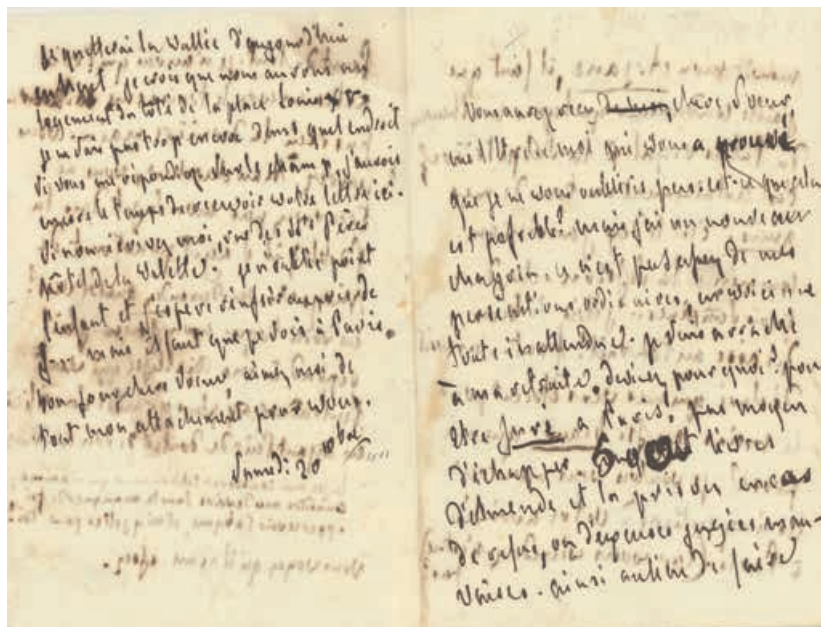 Je quitterai la vallée d'aujourd'hui
en huit, je crois que nous aurons un
logement du côté de la place Louis XV.
je ne sais pas trop encore dans quel endroit
Si vous me répondiez sur le champ, j'aurois
encore le temps de recevoir votre lettre ici.
Sinon écrivez moi, rue des Sts Pères
hôtel de la Valette. je n'oublie point
l'enfant et j'espère auprès de
mais il faut que je sois à Paris.
bon jour chère soeur aimez moi de
tout mon attachement pour vous.
Samedi 20 10bre
Vous aurez reçu chère soeur
une lettre de moi qui vous a prouvé
que je ne vous oubliois pas. est-ce que cela
est possible? mais j'ai un nouveau
chagrin. ce n'est pas assez de mes
persécutions ordinaires, en voici une
toute inattendue. je suis arraché
à ma retraite. devinez pourquoi? pour
être juré à Paris, pas moyen
d'échapper. livres
d'amende et la prison en cas
de refus, ou d'excuses jugées mau-
vaises. ainsi au lieu de faire